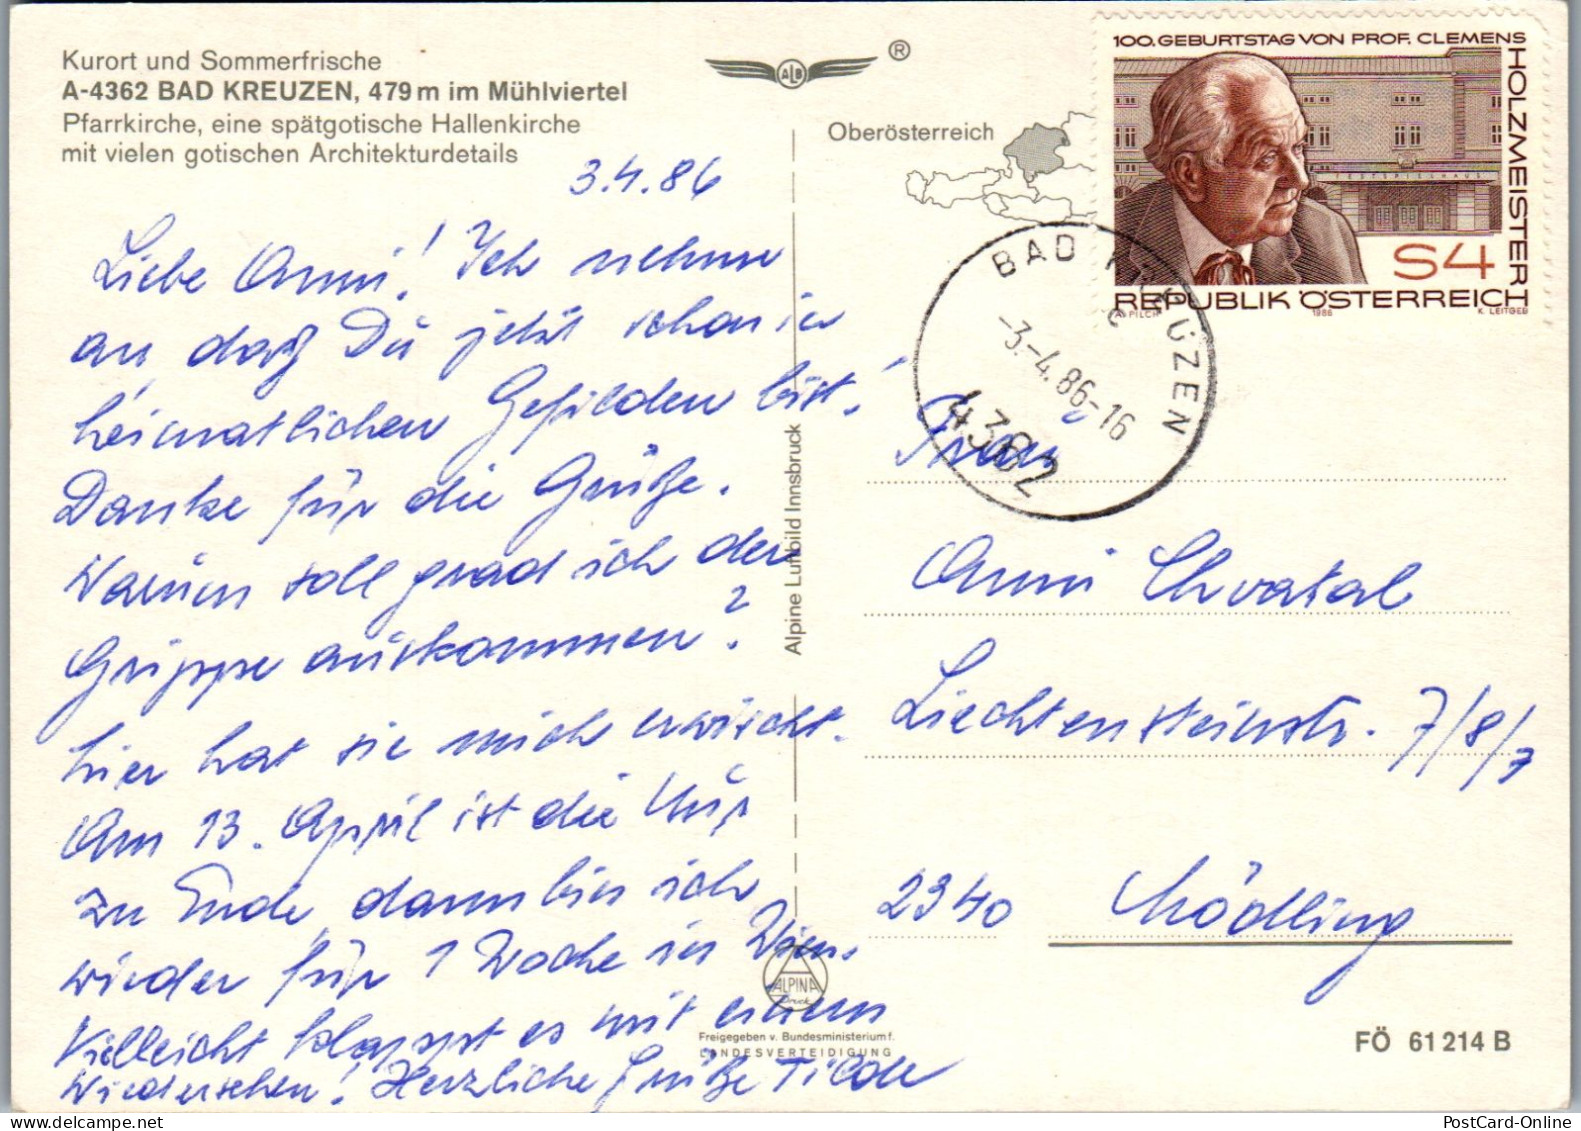 Kurort und Sommerfrische
A-4362 BAD KREUZEN, 479 m im Mühlviertel
Pfarrkirche, eine spätgotische Hallenkirche
mit vielen gotischen Architekturdetails
3.4.86
Liebe Anni! Ich nehme
an daß Du jetzt schon in
heimatlichen Gefilden bist!
Danke für die Grüße.
Warum soll grad ich der
Grippe auskommen?
hier hat sie mich erwischt.
Am 13. April ist die Kur
zu Ende, dann bin ich
wieder für 1 Woche in Wien.
Vielleicht klappt es mit einem
Wiedersehen! Herzliche Grüße Tilde
ALB ®
Oberösterreich
Alpine Luftbild Innsbruck
100. GEBURTSTAG VON PROF. CLEMENS
HOLZMEISTER
FESTSPIELHAUS
S4
REPUBLIK ÖSTERREICH
A. PILCH 1986 K. LEITGEB
BAD KREUZEN
-3.-4.86-16
4362
Frau
Anni Chvatal
Liechtensteinstr. 7/8/7
2340 Mödling
ALPINA
Druck
Freigegeben v. Bundesministerium f.
LANDESVERTEIDIGUNG
FÖ 61 214 B
PostCard-Online.com